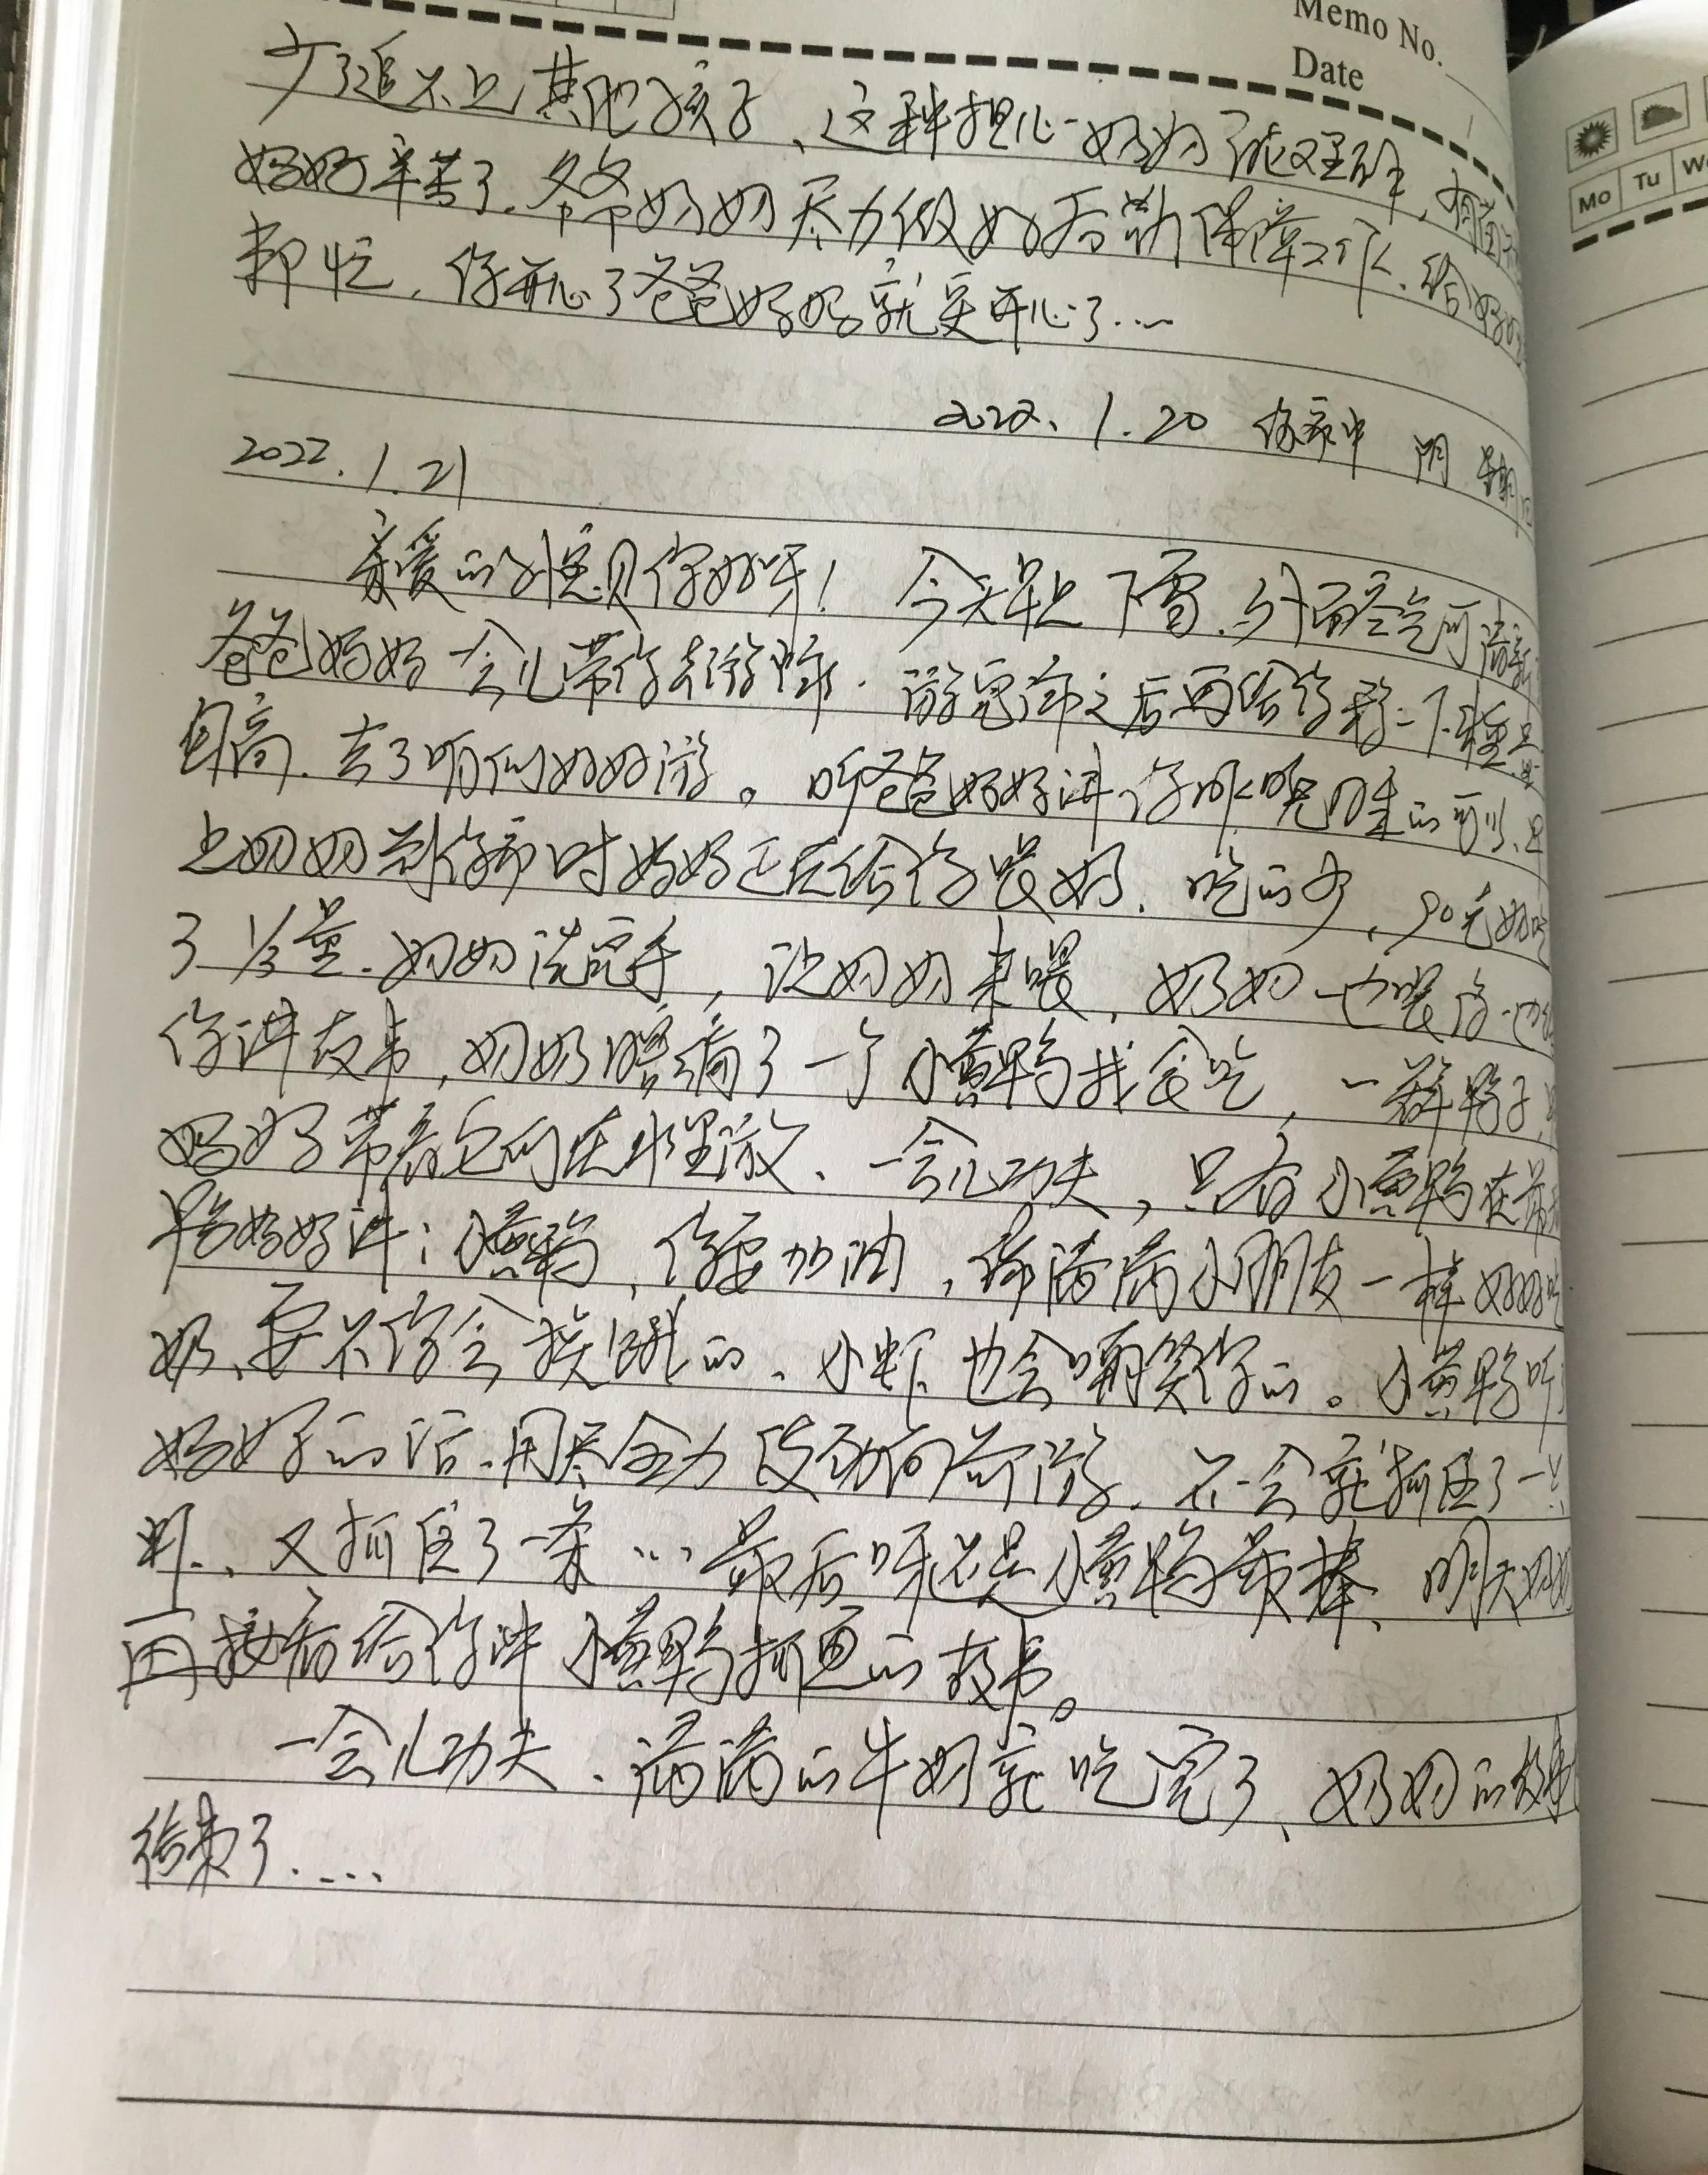 Memo No.
Date
Mo Tu We
少了追不上其他孩子、这种担心奶奶能理解,
妈妈辛苦了.爷爷奶奶尽力做好后勤保障工作.给
帮忙.你开心了爸爸妈妈就更开心了……
2022.1.20
2022.1.21
亲爱的小宝贝你好呀!今天早上下雪.外面空气可清新
爸爸妈妈一会儿带你去游泳.游完泳之后再给你称一下体重
身高.去了咱们好好游。听爸爸妈妈讲你昨晚睡的可以.
上奶奶到你家时妈妈正在给你喂奶.吃的少,90毛奶吃
了1/3量.奶奶洗完手,让奶奶来喂,奶奶一边喂你一边给
你讲故事,奶奶瞎编了一个小黄鸭找食吃,一群鸭子,
妈妈带着它们在水里游、一会儿功夫,只有小黄鸭在
鸭妈妈讲:小黄鸭,你要加油,你满满小朋友一样好好吃
奶、要不你会挨饿的、小虾也会嘲笑你的。小黄鸭听
妈妈的话.用尽全力使劲向前游.不一会就抓住了一
虾、又抓住了一条…最后呀还是小黄鸭最棒、明天奶奶
再接着给你讲小黄鸭抓鱼的故事。
一会儿功夫、满满的牛奶就吃完了、奶奶的故事
结束了.……